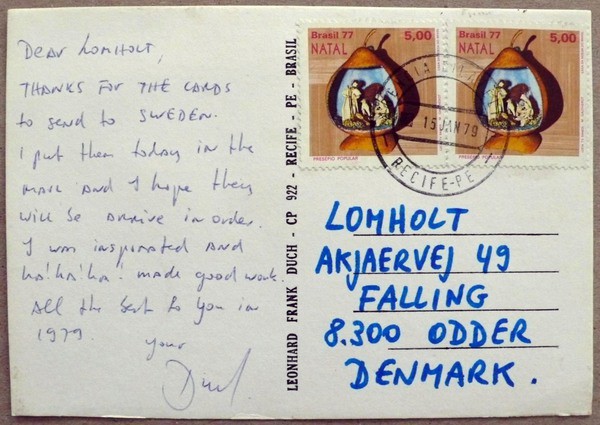 DEAR LOMHOLT,
THANKS FOR THE CARDS
to send to SWEDEN.
I put them today in the
mail AND I hope they
will be arrive in order.
I was inspirated AND
ha! ha! ha! made good work.
All the best to you in
1979.
your
Duch
LEONHARD FRANK DUCH - CP 922 - RECIFE - PE - BRASIL
Brasil 77 5,00
NATAL
PRESÉPIO POPULAR
Brasil 77 5,00
NATAL
PRESÉPIO POPULAR
15 JAN 79
RECIFE-PE
LOMHOLT
AKJAERVEJ 49
FALLING
8.300 ODDER
DENMARK.